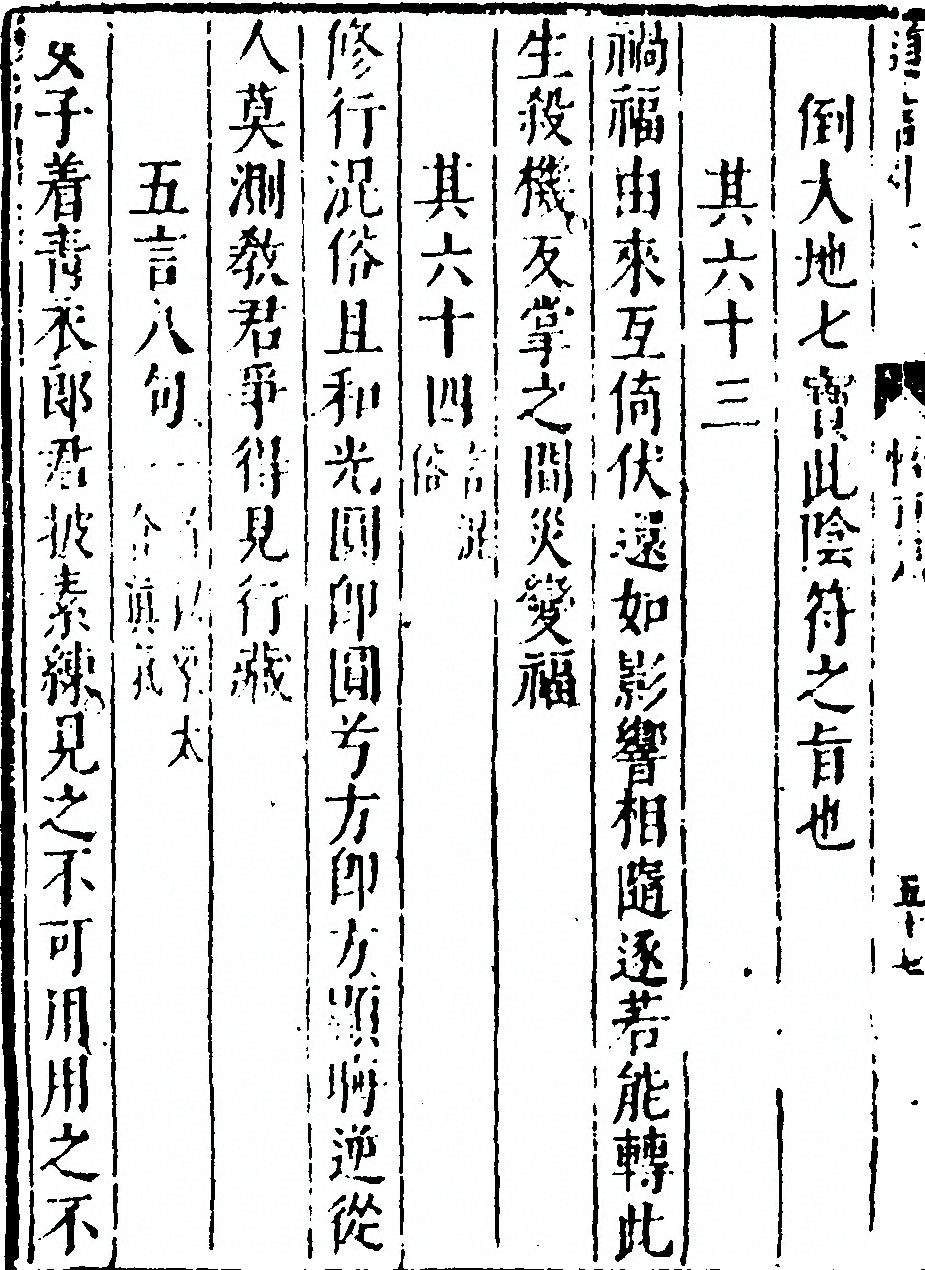 倒大地七寶此陰符之旨也
其六十三
禍福由來互倚伏還如影響相隨逐若能轉此
生殺機反掌之間災變福
其六十四言混俗
修行混俗且和光圓即圓兮方即方顯晦逆從
人莫測教君爭得見行藏
五言八句一首以象太
女子着青衣郎君披素練見之不可用用之不
五十七